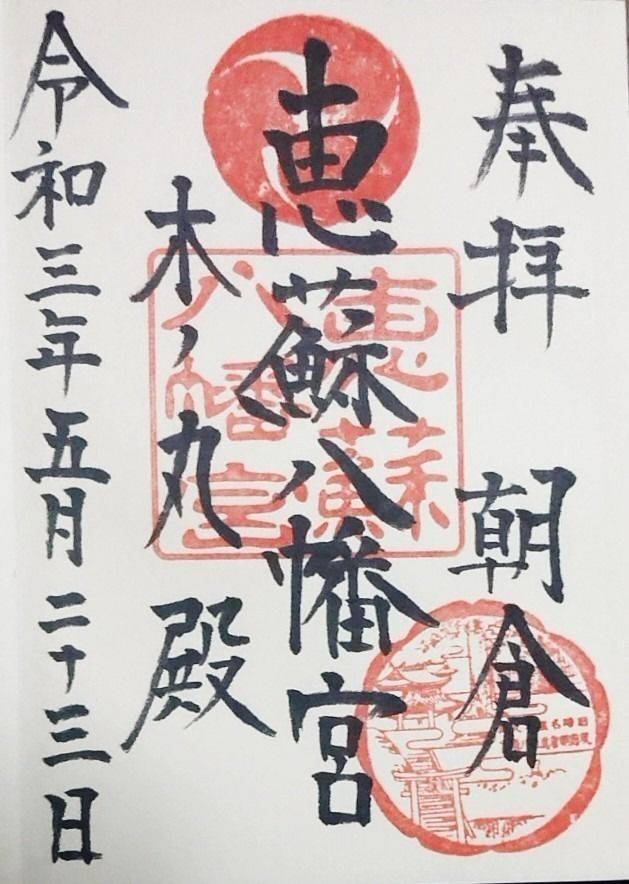 奉拝　朝倉
恵蘇八幡宮
木ノ丸殿
令和三年五月二十三日
恵蘇
八幡宮